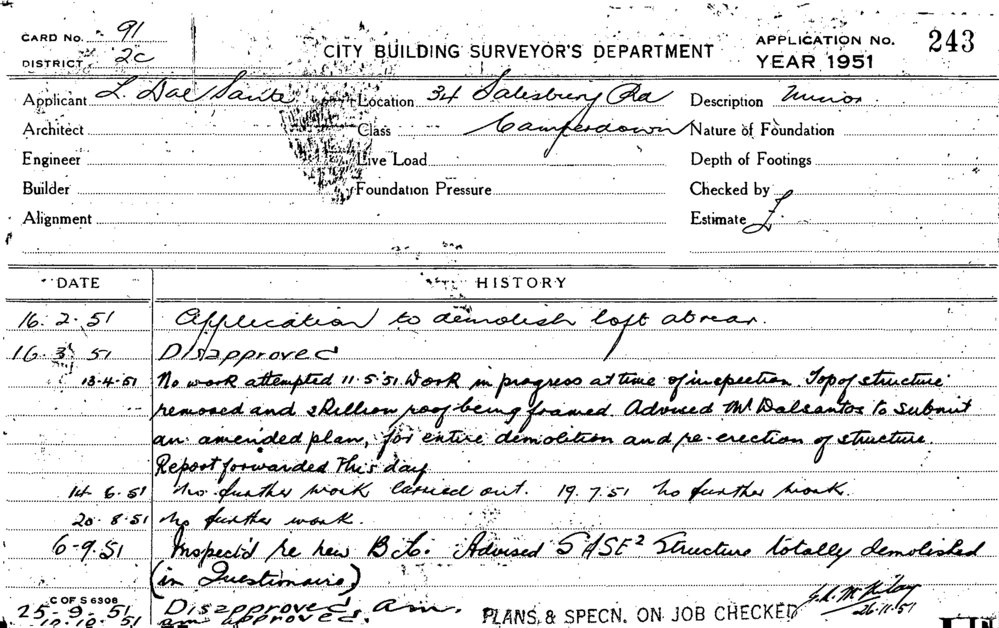 CARD NO. 91
DISTRICT 2C
CITY BUILDING SURVEYOR'S DEPARTMENT
APPLICATION NO. 243
YEAR 1951
Applicant L. Dal Santo Location 34 Salesbury Rd Description Minor
Architect Class Camperdown Nature of Foundation
Engineer Live Load Depth of Footings
Builder Foundation Pressure Checked by
Alignment Estimate £
DATE HISTORY
16.2.51 Application to demolish loft at rear.
16.3.51 Disapproved
13.4.51 No work attempted 11.5.51 Work in progress at time of inspection. Top of structure
removed and skillion roof being framed. Advised Mr Dalsantos to submit
an amended plan, for entire demolition and re-erection of structure.
Report forwarded this day
14 6.51 No further work carried out. 19.7.51 No further work.
20.8.51 No further work.
6-9.51 Inspect'd re new B.A. Advised Structure totally demolished
(in Questionaire)
C OF S 6308
25-9-51 Disapproved. am.
12.10.51 am approved.
PLANS & SPECN. ON JOB CHECKED
26.11.51